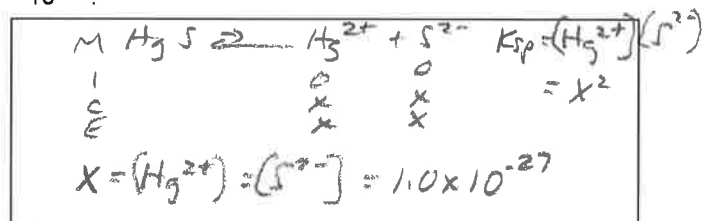 M HgS ⇌ Hg²⁺ + S²⁻ Ksp = [Hg²⁺][S²⁻]
I 0 0 = x²
C x x
E x x
x = [Hg²⁺] = [S²⁻] = 1.0 x 10⁻²⁷